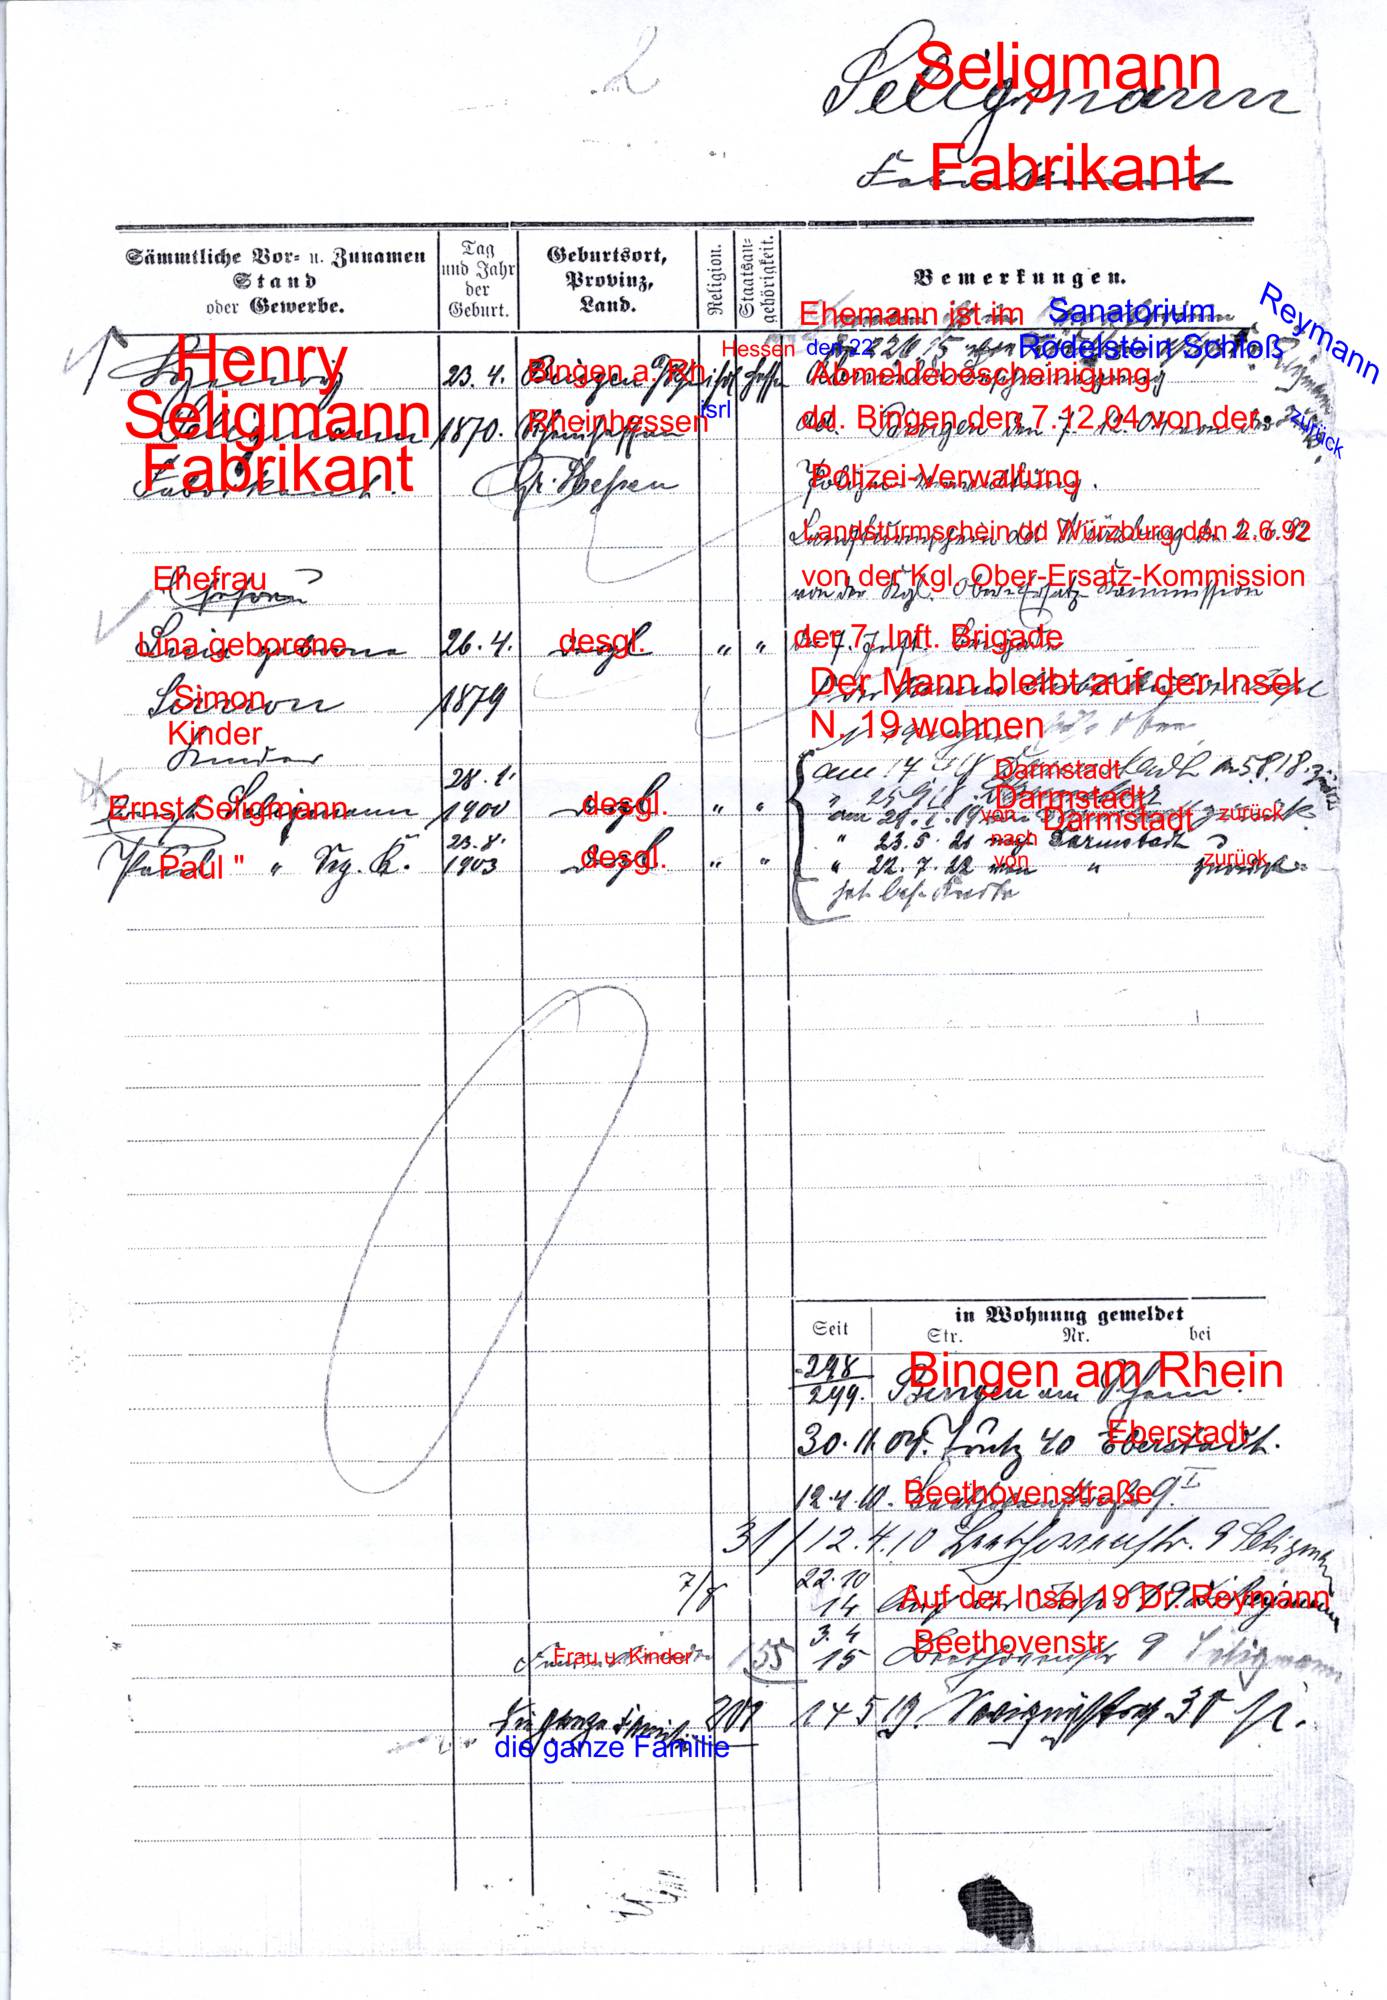 2
Seligmann
Seligmann
Fabrikant
Fabrikant
Sämmtliche Vor- u. Zunamen
Stand
oder Gewerbe.
Tag
und Jahr
der
Geburt.
Geburtsort,
Provinz,
Land.
Religion.
Staatsan-
gehörigkeit.
Bemerkungen.
Ehemann ist im Sanatorium
Reymann
den 22 Rödelstein Schloß
Henry
23. 4. Bingen a. Rh. Hessen
Abmeldebescheinigung
Seligmann
Seligmann 1870. Rheinhessen isrl
dd. Bingen den 7.12.04 von der
zurück
Fabrikant
Fabrikant. Gr. Hessen
Polizei-Verwaltung
Landsturmschein dd Würzburg den 2.6.92
Ehefrau
von der Kgl. Ober-Ersatz-Kommission
Lina geborene 26. 4. desgl. " "
der 7. Inft. Brigade
Simon 1879
Der Mann bleibt auf der Insel
N. 19 wohnen
Kinder
Kinder
28. 1.
am 17 Darmstadt
Ernst Seligmann 1900 desgl. " "
Darmstadt
von Darmstadt zurück
23. 8.
" 23. 5. 21 nach Darmstadt
Paul " 1903 desgl. " "
" 22. 7. 22 von " zurück
in Wohnung gemeldet
Seit Str. Nr. bei
298
299. Bingen am Rhein
30. 11. 04. 40 Eberstadt.
12. 4. 10. Beethovenstraße 9 I
31/ 12. 4. 10 Beethovenstr. 9 Seligmann
7/8 22. 10
14 Auf der Insel 19 Dr. Reymann
3. 4
Frau u. Kinder 155 15 Beethovenstr 9 Seligmann
201 14 5 19. 30
die ganze Familie